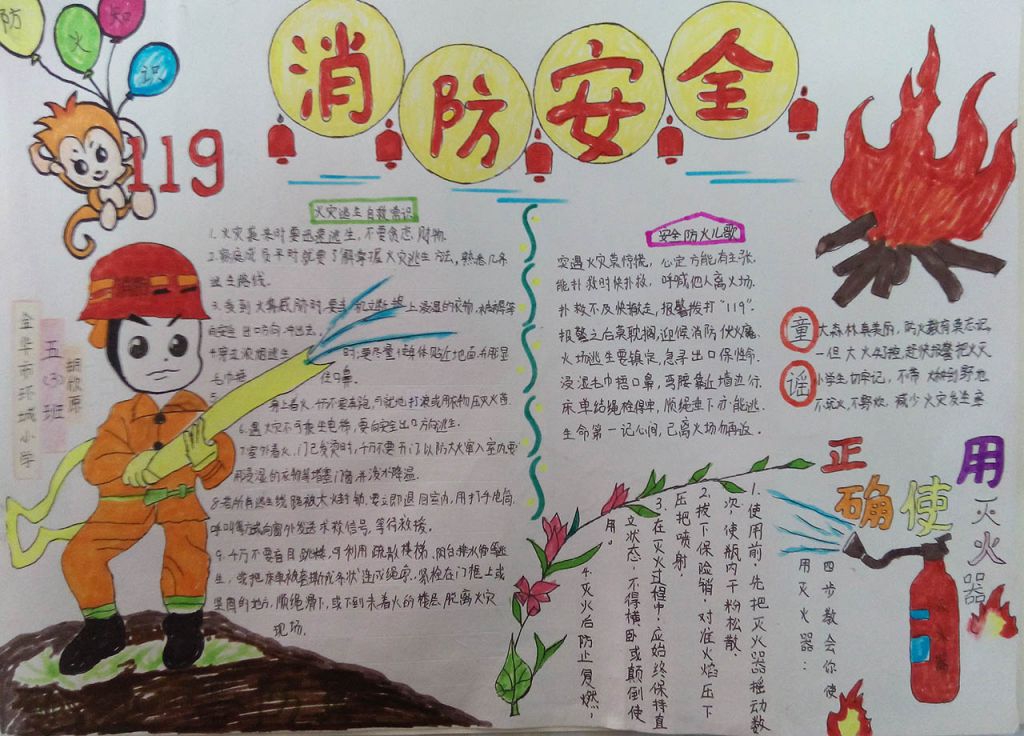 防
火
知
识
消防安全
119
金华市环城小学
五(3)班
火灾逃生自救常识
1.火灾袭来时要迅速逃生,不要贪恋财物.
2.家庭成员平时就要了解掌握火灾逃生方法,熟悉几条
逃生路线.
3.受到火势威胁时,要当机立断披上浸湿的衣物,被褥等
向安全出口方向冲出去.
4.穿过浓烟逃生时,要尽量使身体贴近地面,并用湿
毛巾捂住口鼻.
5.身上着火,千万不要奔跑,可就地打滚或用衣物压灭火苗
6.遇火灾不可乘坐电梯,要向安全出口方向逃生.
7.室外着火,门已发烫时,千万不要开门,以防大火窜入室内,要
用浸湿的衣物等堵塞门窗,并泼水降温.
8.若所有逃生线路被大火封锁,要立即退回室内,用打手电筒,
呼叫等方式向窗外发送求救信号,等待救援.
9.千万不要盲目跳楼,可利用疏散楼梯,阳台排水管等逃
生,或把床单被套撕成条状连成绳索,紧栓在门框上或
坚固的地方,顺绳滑下,或下到未着火的楼层脱离火灾
现场.
安全防火儿歌
突遇火灾莫惊慌,心定方能有主张.
能扑救时快扑救,呼喊他人离火场.
扑救不及快撤走,报警拨打“119”.
报警之后莫耽搁,迎候消防伏火魔.
火场逃生要镇定,急寻出口保性命.
浸湿毛巾捂口鼻,弯腰靠近墙边行.
床单结绳栓得牢,顺绳垂下亦能逃.
生命第一记心间,已离火场勿再返.
童谣
大森林真美丽,防火教育莫忘记,
一但大火幻挖,赶快报警把火灭
小学生切牢记,不带火种到野地
不玩火,不野炊,减少火灾发生率
正确使用灭火器
四步教会你使
用灭火器:
1.使用前,先把灭火器摇动数
次,使瓶内干粉松散.
2.拔下保险销,对准火焰压下
压把喷射.
3.在灭火过程中,应始终保持直
立状态,不得横卧或颠倒使
用.
4.灭火后防止复燃.